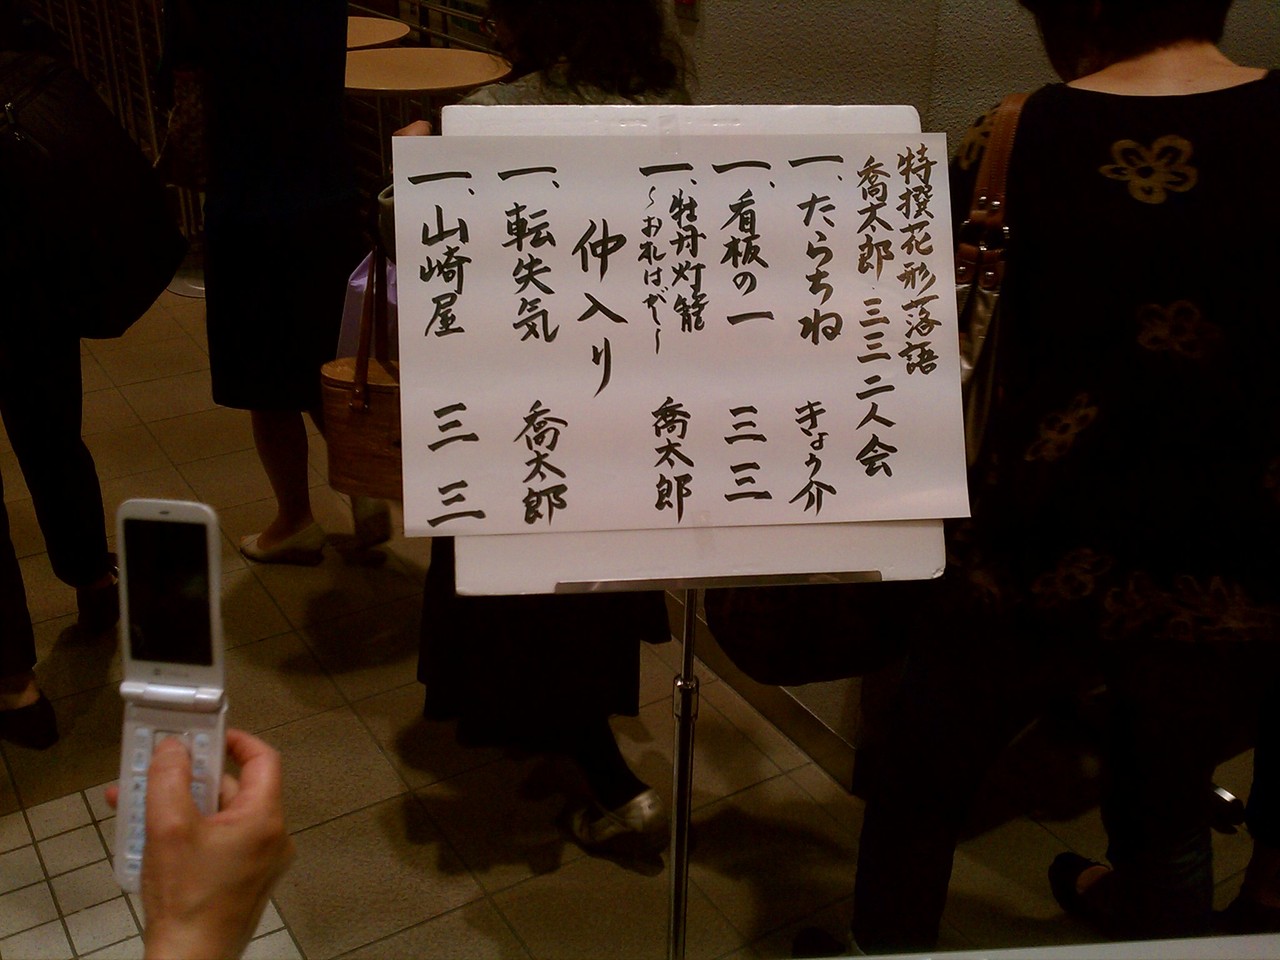 特撰花形落語
喬太郎 三三 二人会
一、たらちね きょう介
一、看板の一 三三
一、牡丹灯籠 喬太郎
～おれはが～
仲入り
一、転失気 喬太郎
一、山崎屋 三三